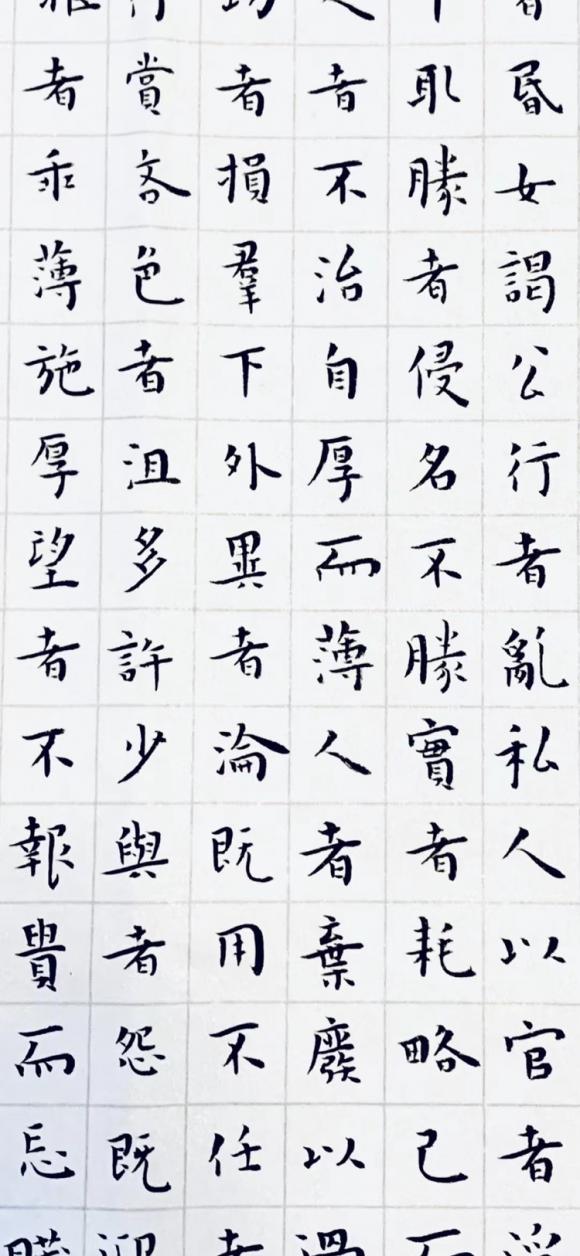 者昏女謁公行者亂私人以官者
取勝者侵名不勝實者耗略己而
者不治自厚而薄人者棄廢以過
功者損羣下外異者淪既用不任者
行賞吝色者沮多許少與者怨既迎
者乖薄施厚望者不報貴而忘